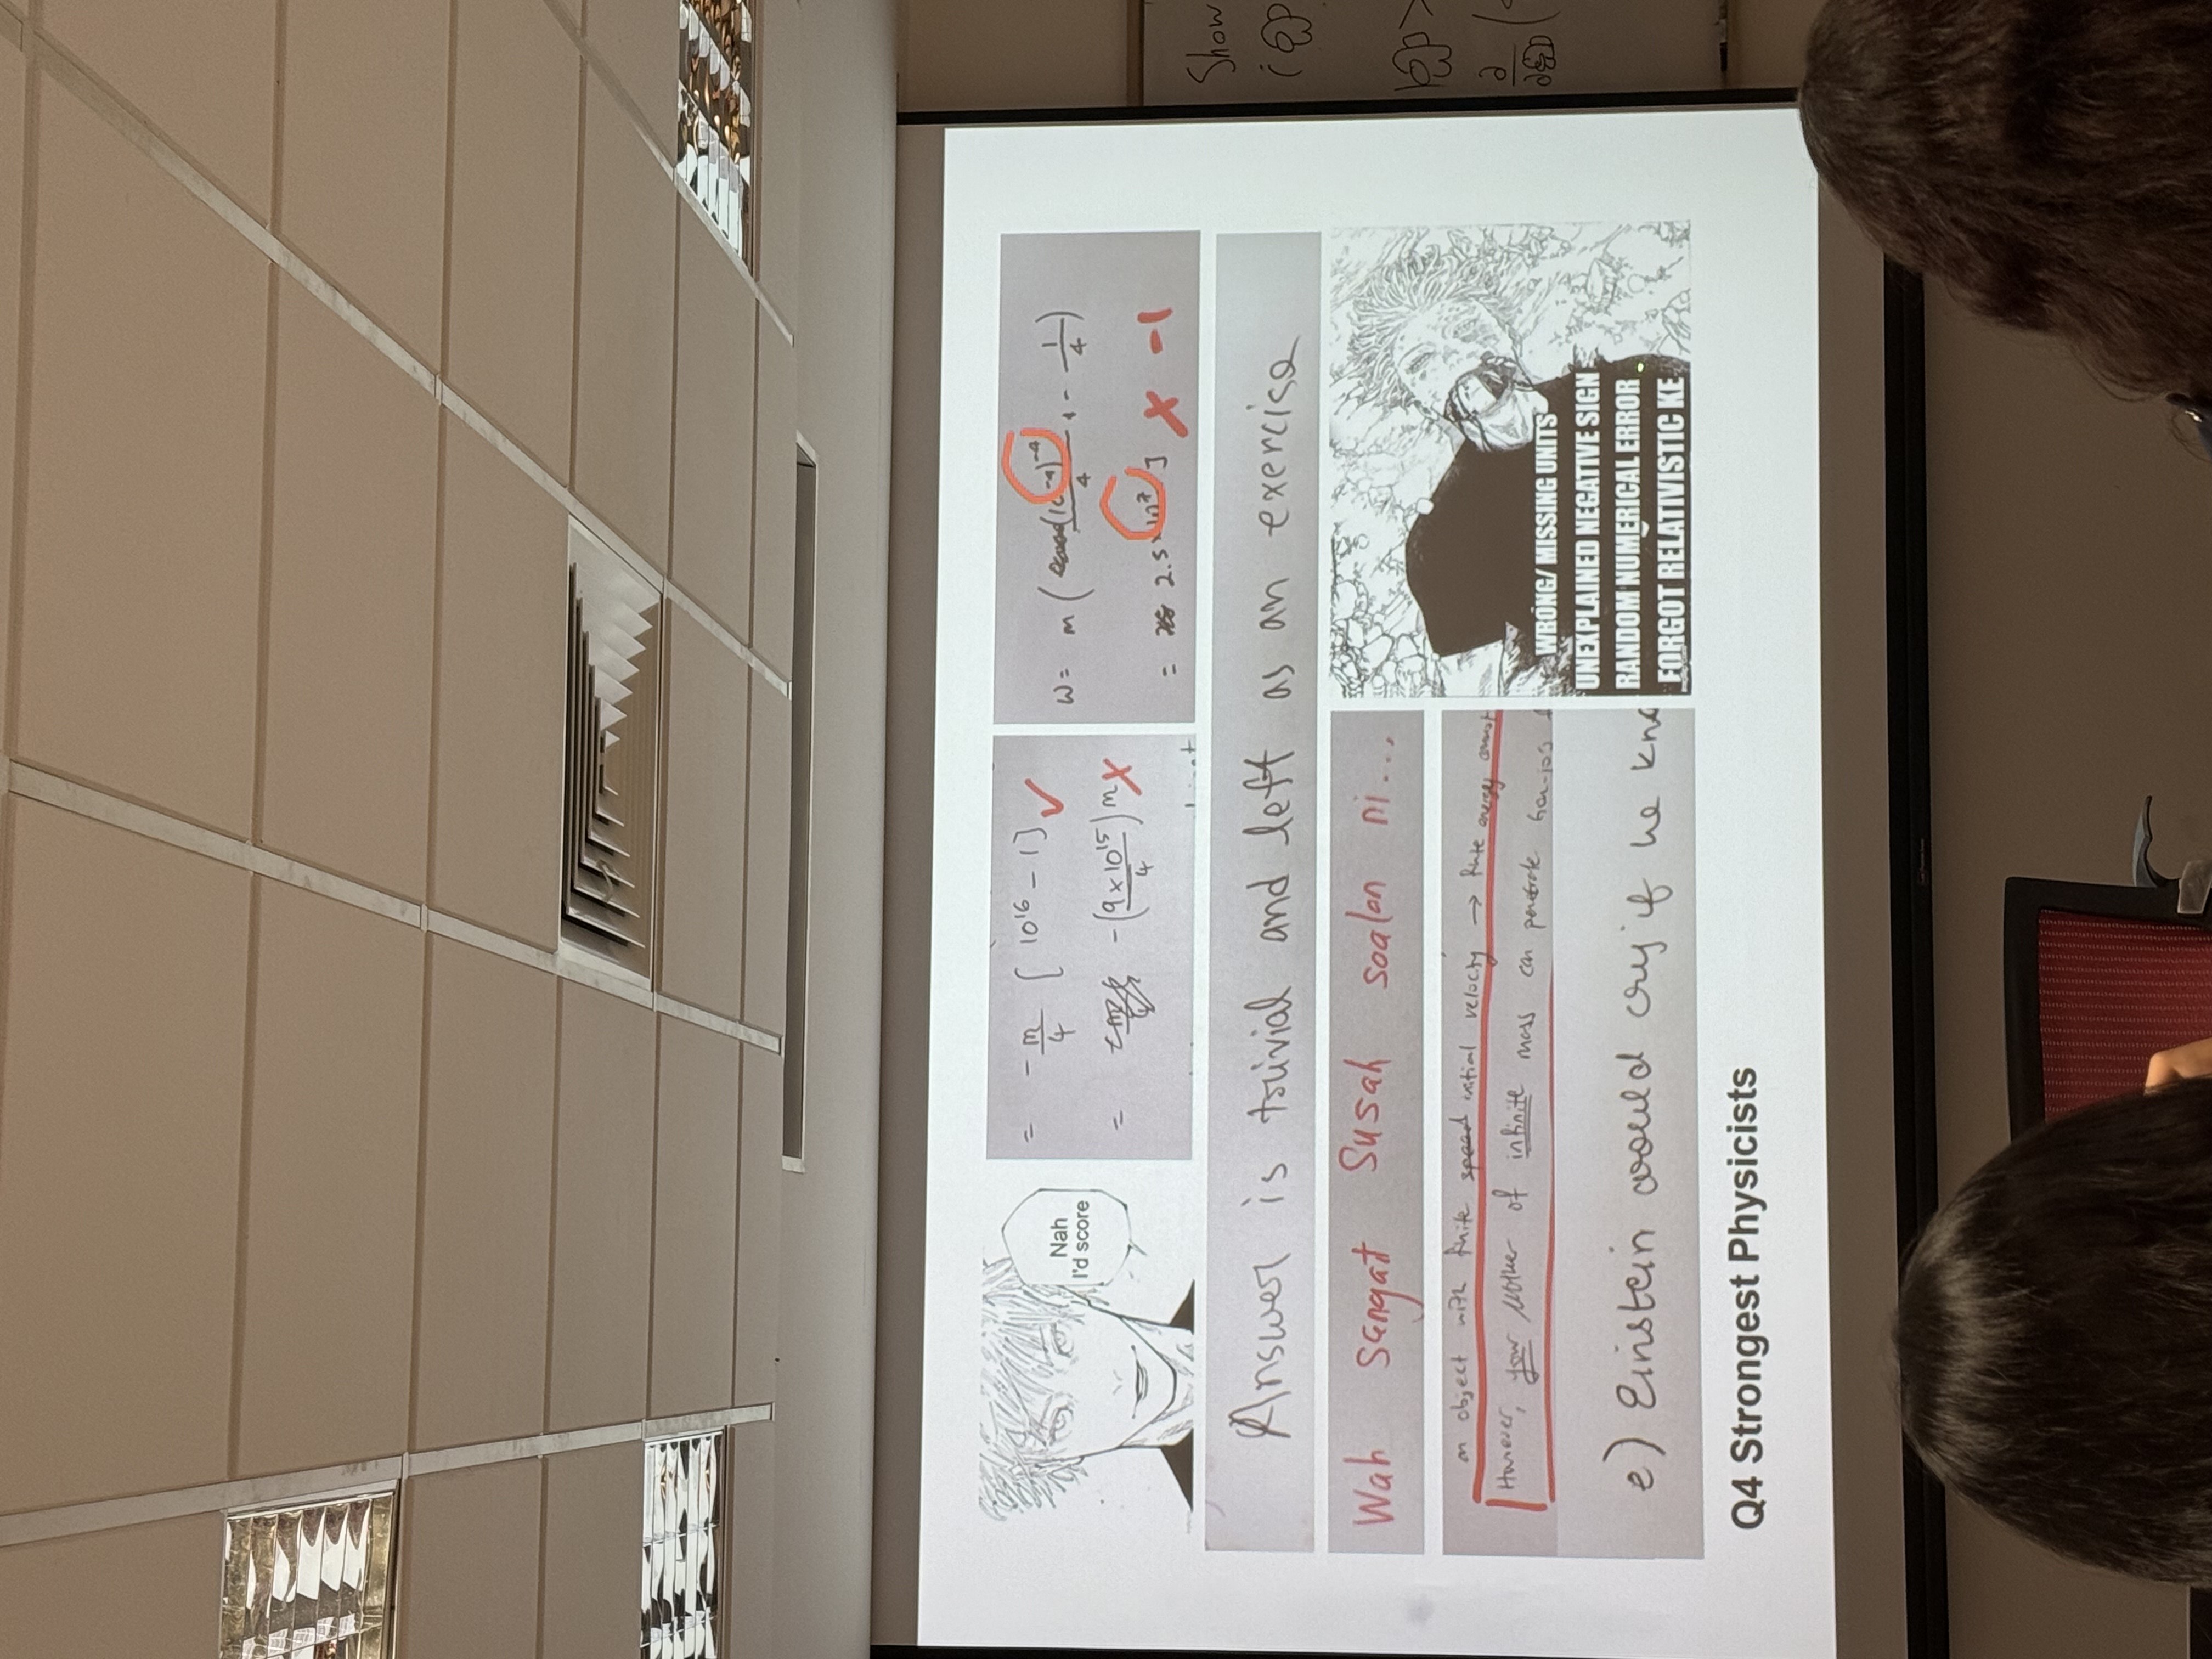 Nah
I'd score
= -m/4 [ 10¹⁶ - 1 ] ✓
= -(9×10¹⁵/4) m ✗
W = m ( (10⁻⁴)⁻⁴/4 - 1/4 )
= 2.5×10⁷ J ✗ -1
Answer is trivial and left as an exercise
Wah sangat susah soalan ni...
object with finite speed initial velocity → finite energy cannot
However, your mother of infinite mass can penetrate
e) Einstein would cry if he kno
WRONG/ MISSING UNITS
UNEXPLAINED NEGATIVE SIGN
RANDOM NUMERICAL ERROR
FORGOT RELATIVISTIC KE
Q4 Strongest Physicists
Show